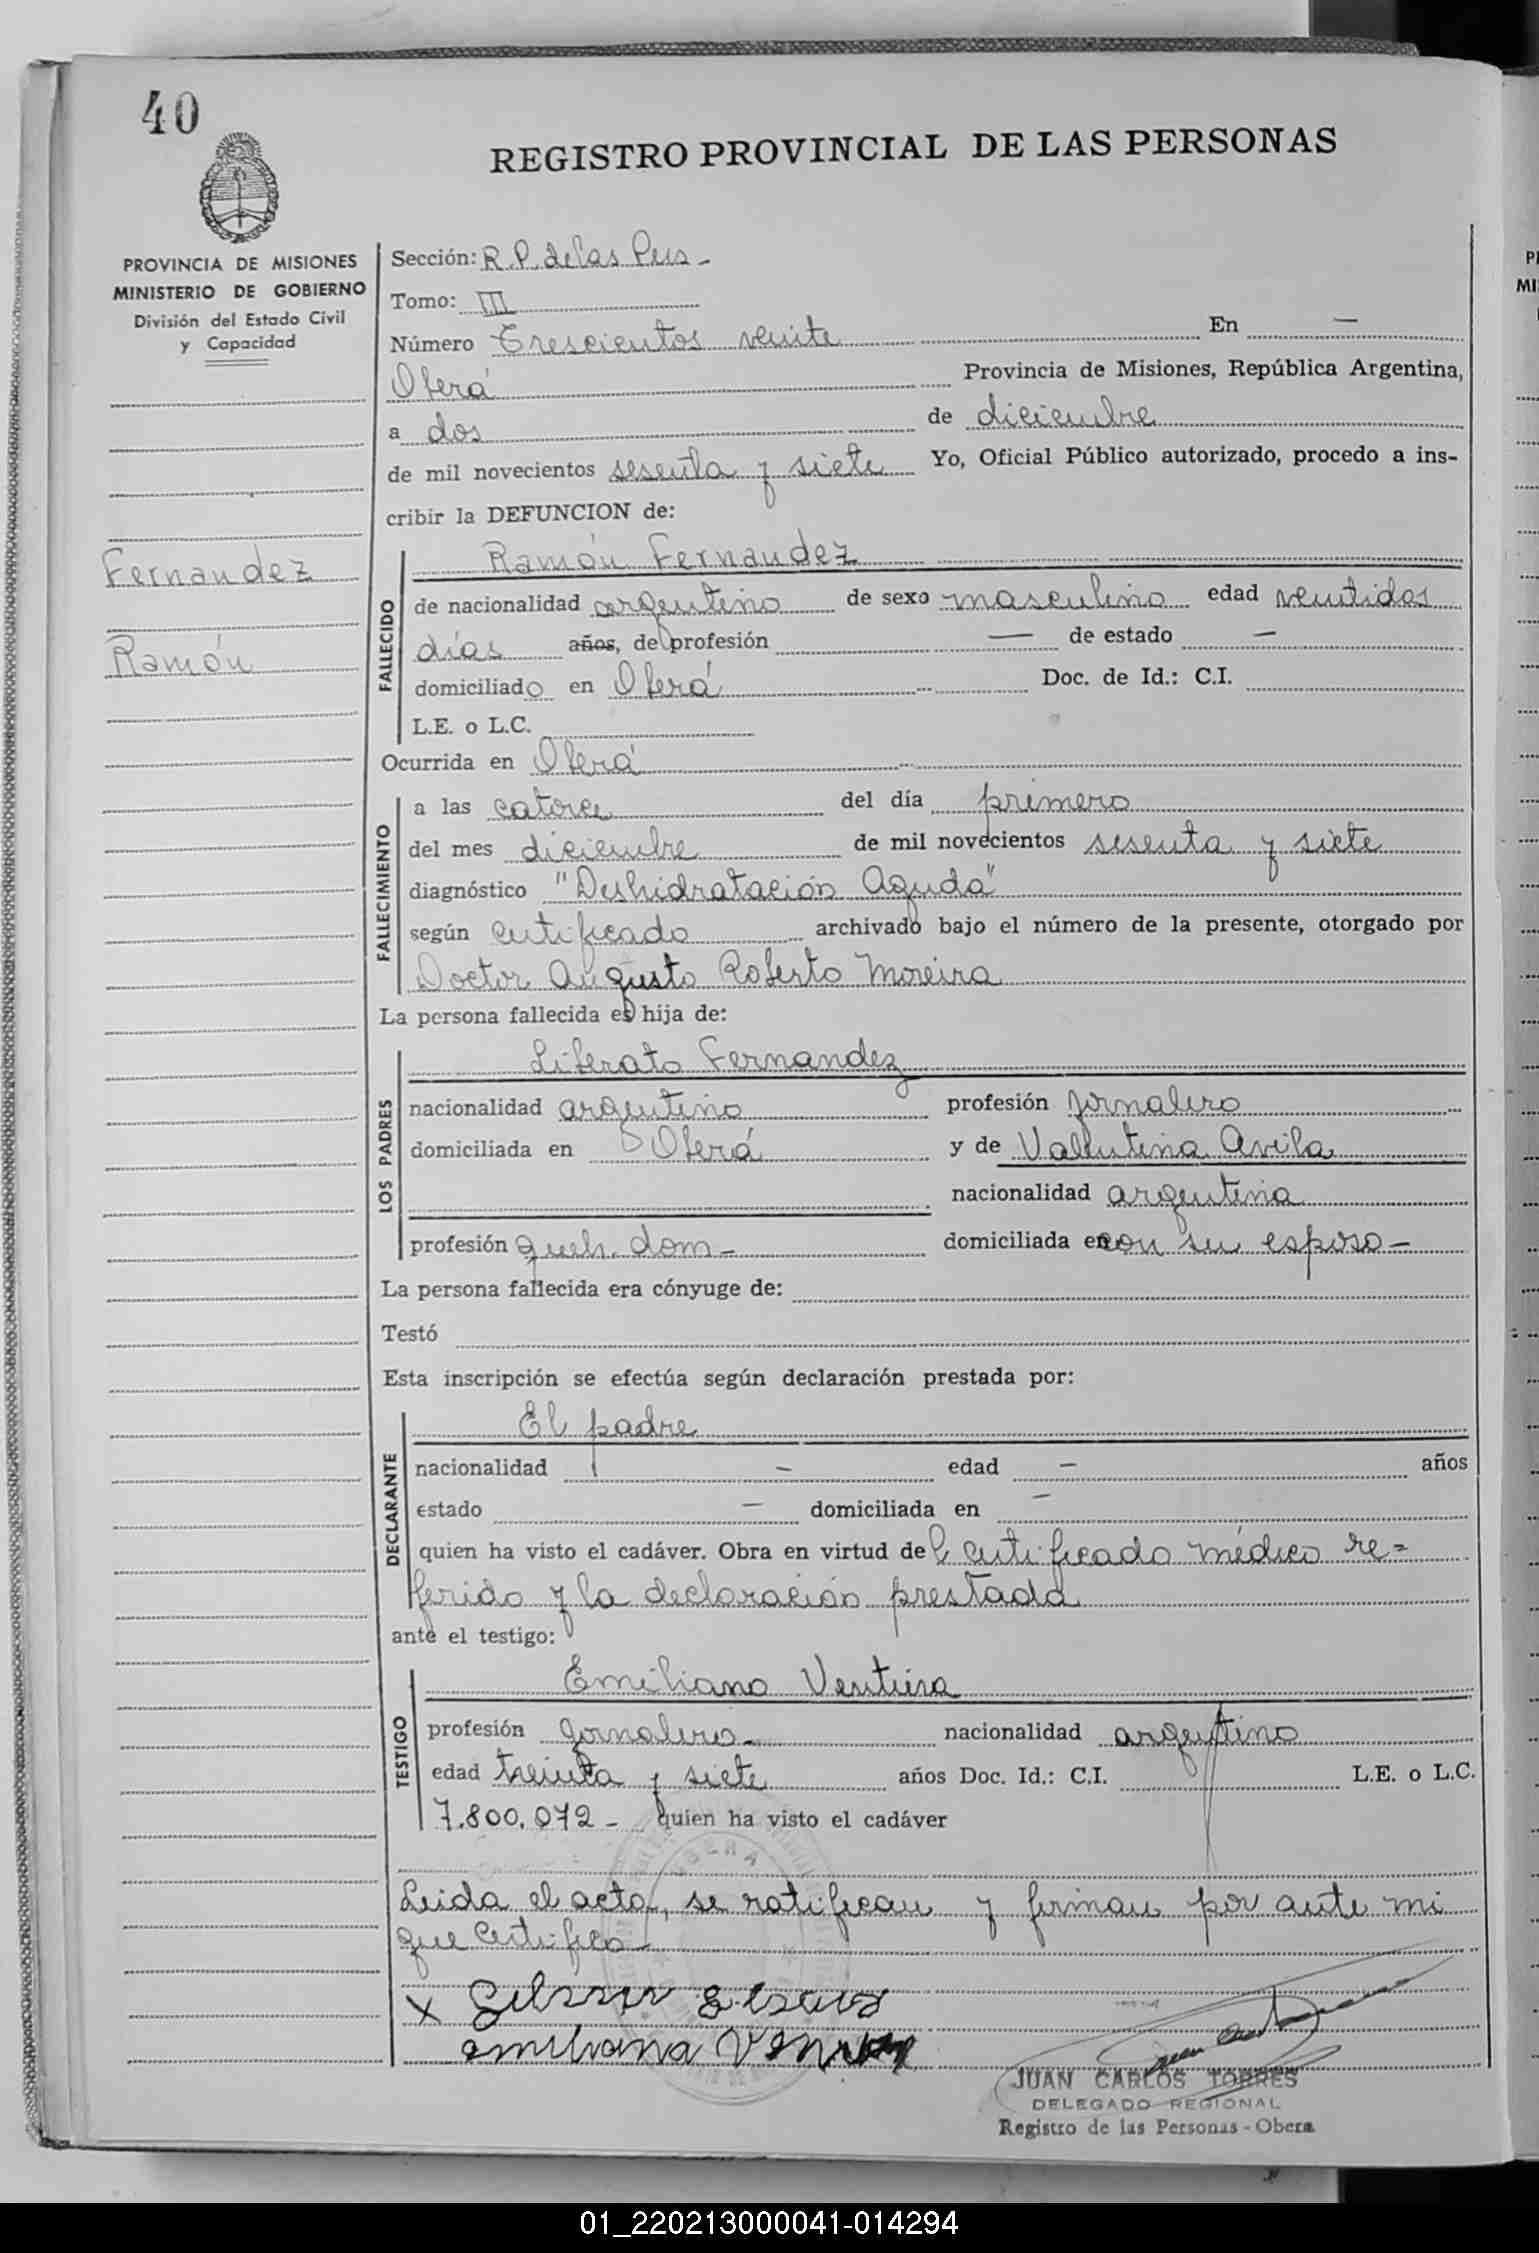 40
REGISTRO PROVINCIAL DE LAS PERSONAS
PROVINCIA DE MISIONES
MINISTERIO DE GOBIERNO
División del Estado Civil
y Capacidad
Fernandez
Ramón
Sección: R.P. de las Pers -
Tomo: III
Número Trescientos veinte En —
Oberá Provincia de Misiones, República Argentina,
a dos de diciembre
de mil novecientos sesenta y siete Yo, Oficial Público autorizado, procedo a ins-
cribir la DEFUNCION de:
FALLECIDO
Ramón Fernandez
de nacionalidad argentino de sexo masculino edad veintidos
días años, de profesión — de estado —
domiciliado en Oberá Doc. de Id.: C.I.
L.E. o L.C.
Ocurrida en Oberá
FALLECIMIENTO
a las catorce del día primero
del mes diciembre de mil novecientos sesenta y siete
diagnóstico "Deshidratación Aguda"
según certificado archivado bajo el número de la presente, otorgado por
Doctor Augusto Roberto Moreira
La persona fallecida es hija de:
LOS PADRES
Liberato Fernandez
nacionalidad argentino profesión jornalero
domiciliada en Oberá y de Valentina Avila
nacionalidad argentina
profesión queh. dom - domiciliada en con su esposo -
La persona fallecida era cónyuge de:
Testó
Esta inscripción se efectúa según declaración prestada por:
DECLARANTE
El padre
nacionalidad — edad — años
estado — domiciliada en —
quien ha visto el cadáver. Obra en virtud del certificado médico re=
ferido y la declaración prestada
ante el testigo:
TESTIGO
Emiliano Ventura
profesión jornalero - nacionalidad argentino
edad treinta y siete años Doc. Id.: C.I. L.E. o L.C.
7.800.072 - quien ha visto el cadáver
Leida el acta, se ratifican y firman por ante mi
que certifico -
X
emiliana
JUAN CARLOS TORRES
DELEGADO REGIONAL
Registro de las Personas - Obera
01_220213000041-014294